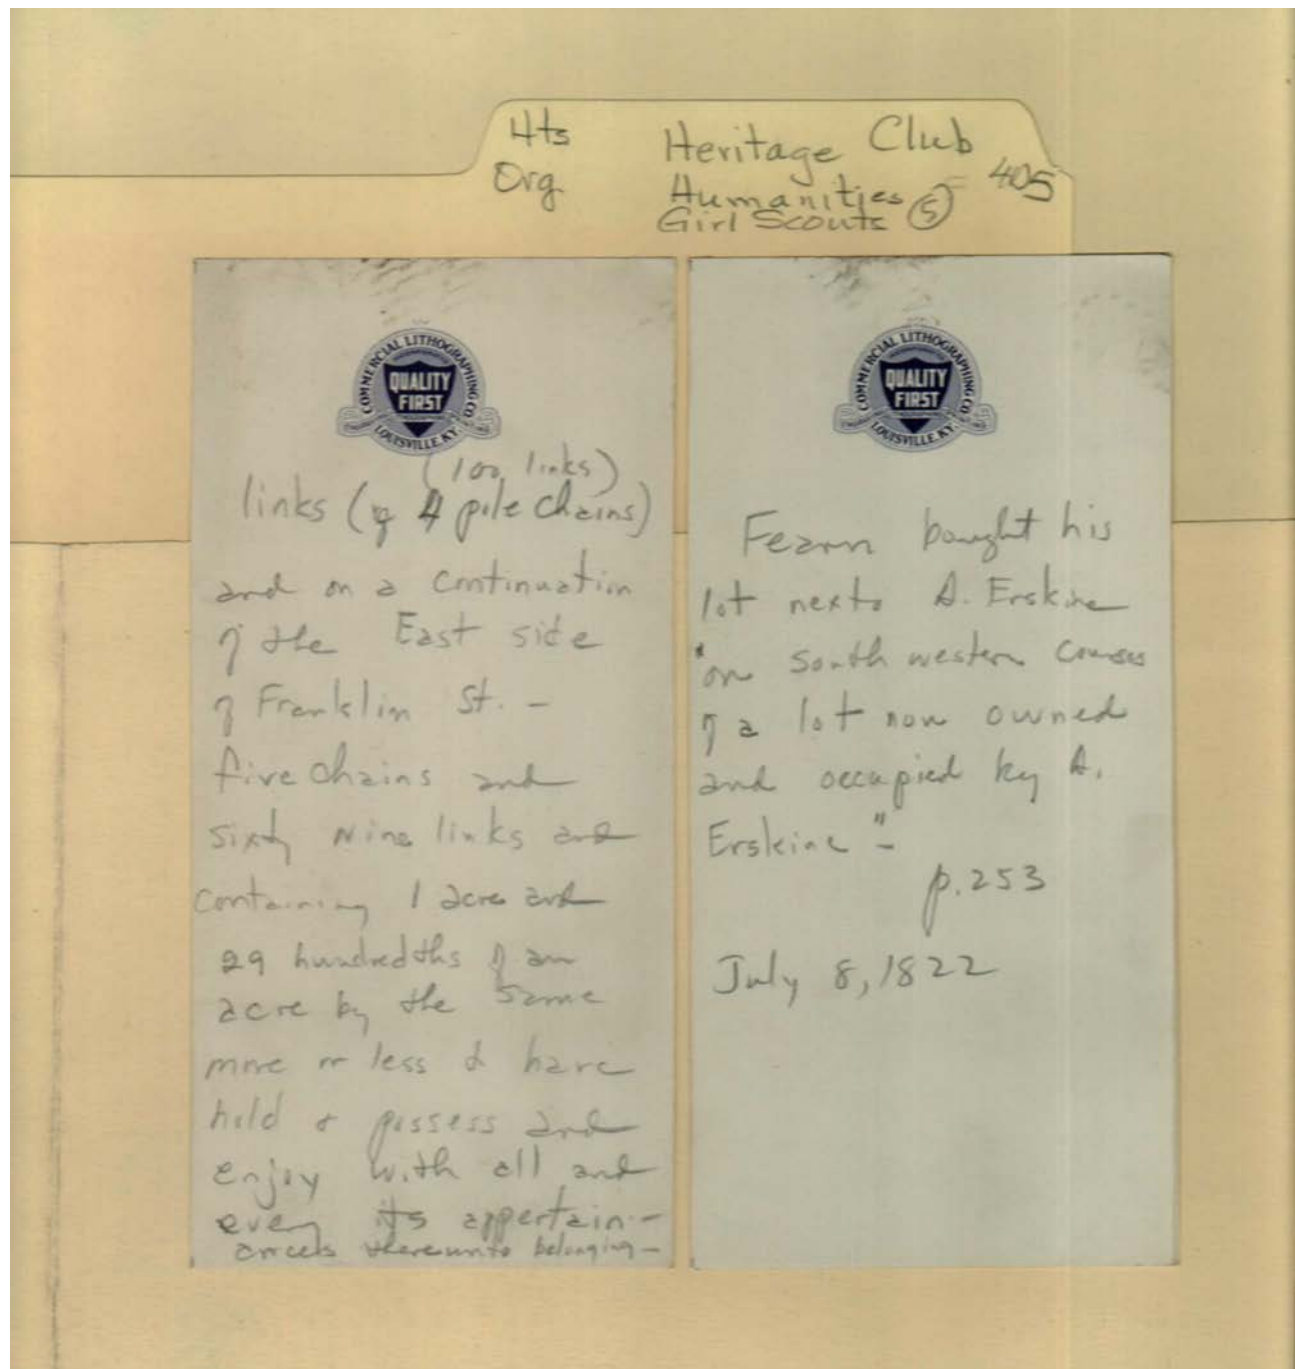 Hts Heritage Club
Org Humanities 405
Girl Scouts 5
COMMERCIAL LITHOGRAPHING CO.
QUALITY
FIRST
LOUISVILLE, KY.
(100 links)
links (of 4 pole chains)
and on a continuation
of the East side
of Franklin St. -
five chains and
sixty nine links and
containing 1 acre and
29 hundredths of an
acre by the same
more or less to have
hold & possess and
enjoy with all and
every its appertain-
ances thereunto belonging-
COMMERCIAL LITHOGRAPHING CO.
QUALITY
FIRST
LOUISVILLE, KY.
Fearn bought his
lot next to A. Erskine
"on south western courses
of a lot now owned
and occupied by A.
Erskine" -
p.253
July 8, 1822